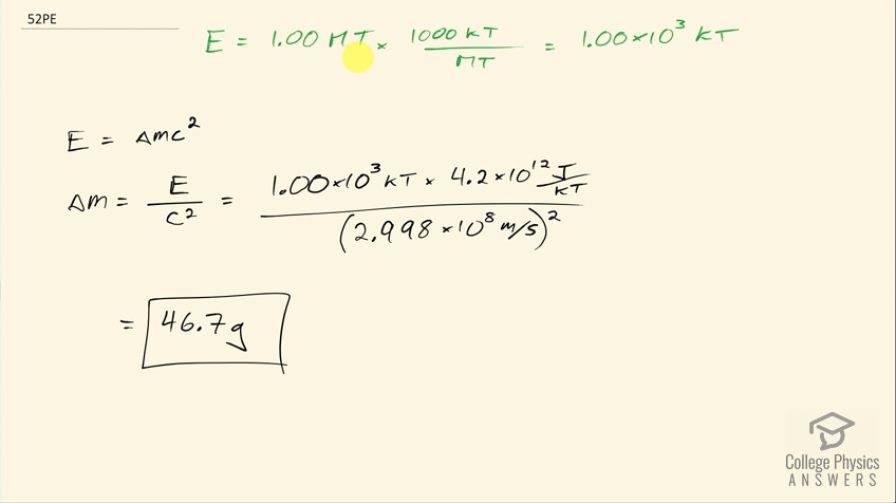 52PE
E = 1.00 MT × 1000 KT / MT = 1.00×10³ KT
E = Δmc²
Δm = E / c² = 1.00×10³ KT × 4.2×10¹² J/KT / (2.998×10⁸ m/s)²
= 46.7g
College Physics
ANSWERS